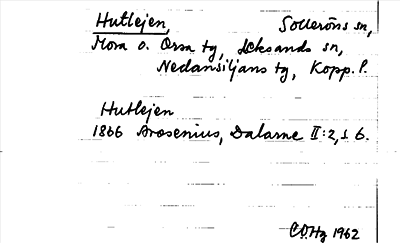 Hutlejen, Solleröns sn,
Mora o. Orsa tg, Leksands sn,
Nedansiljans tg, Kopp. l.
Hutlejen
1866 Arosenius, Dalarne II:2, s 6.
1962